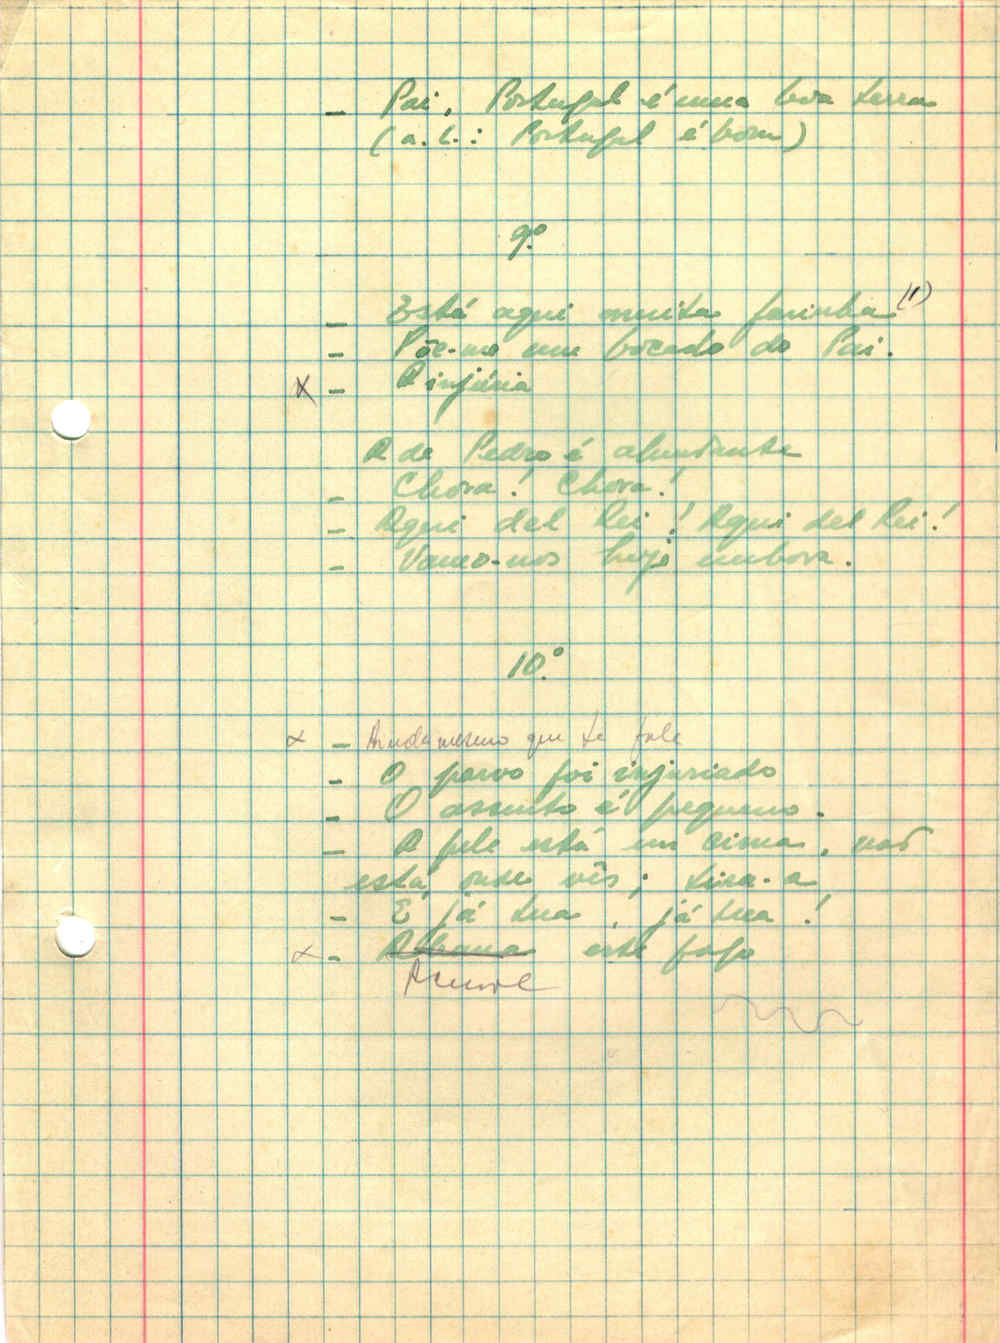 - Pai, Portugal é uma boa terra
(a. L.: Portugal é bom)
9º
- Está aqui muita farinha (1)
- Põe-no um bocado do Pai.
x - A injúria
A de Pedro é abundante
- Chora! Chora!
- Aqui del Rei! Aqui del Rei!
- Vamo-nos hoje embora.
10.º
x - que te fale
- O parvo foi injuriado
- O assunto é pequeno.
- A pele está em cima, nas
está, onde vês; tira-a
- É já tua, já tua!
x - A este fogo